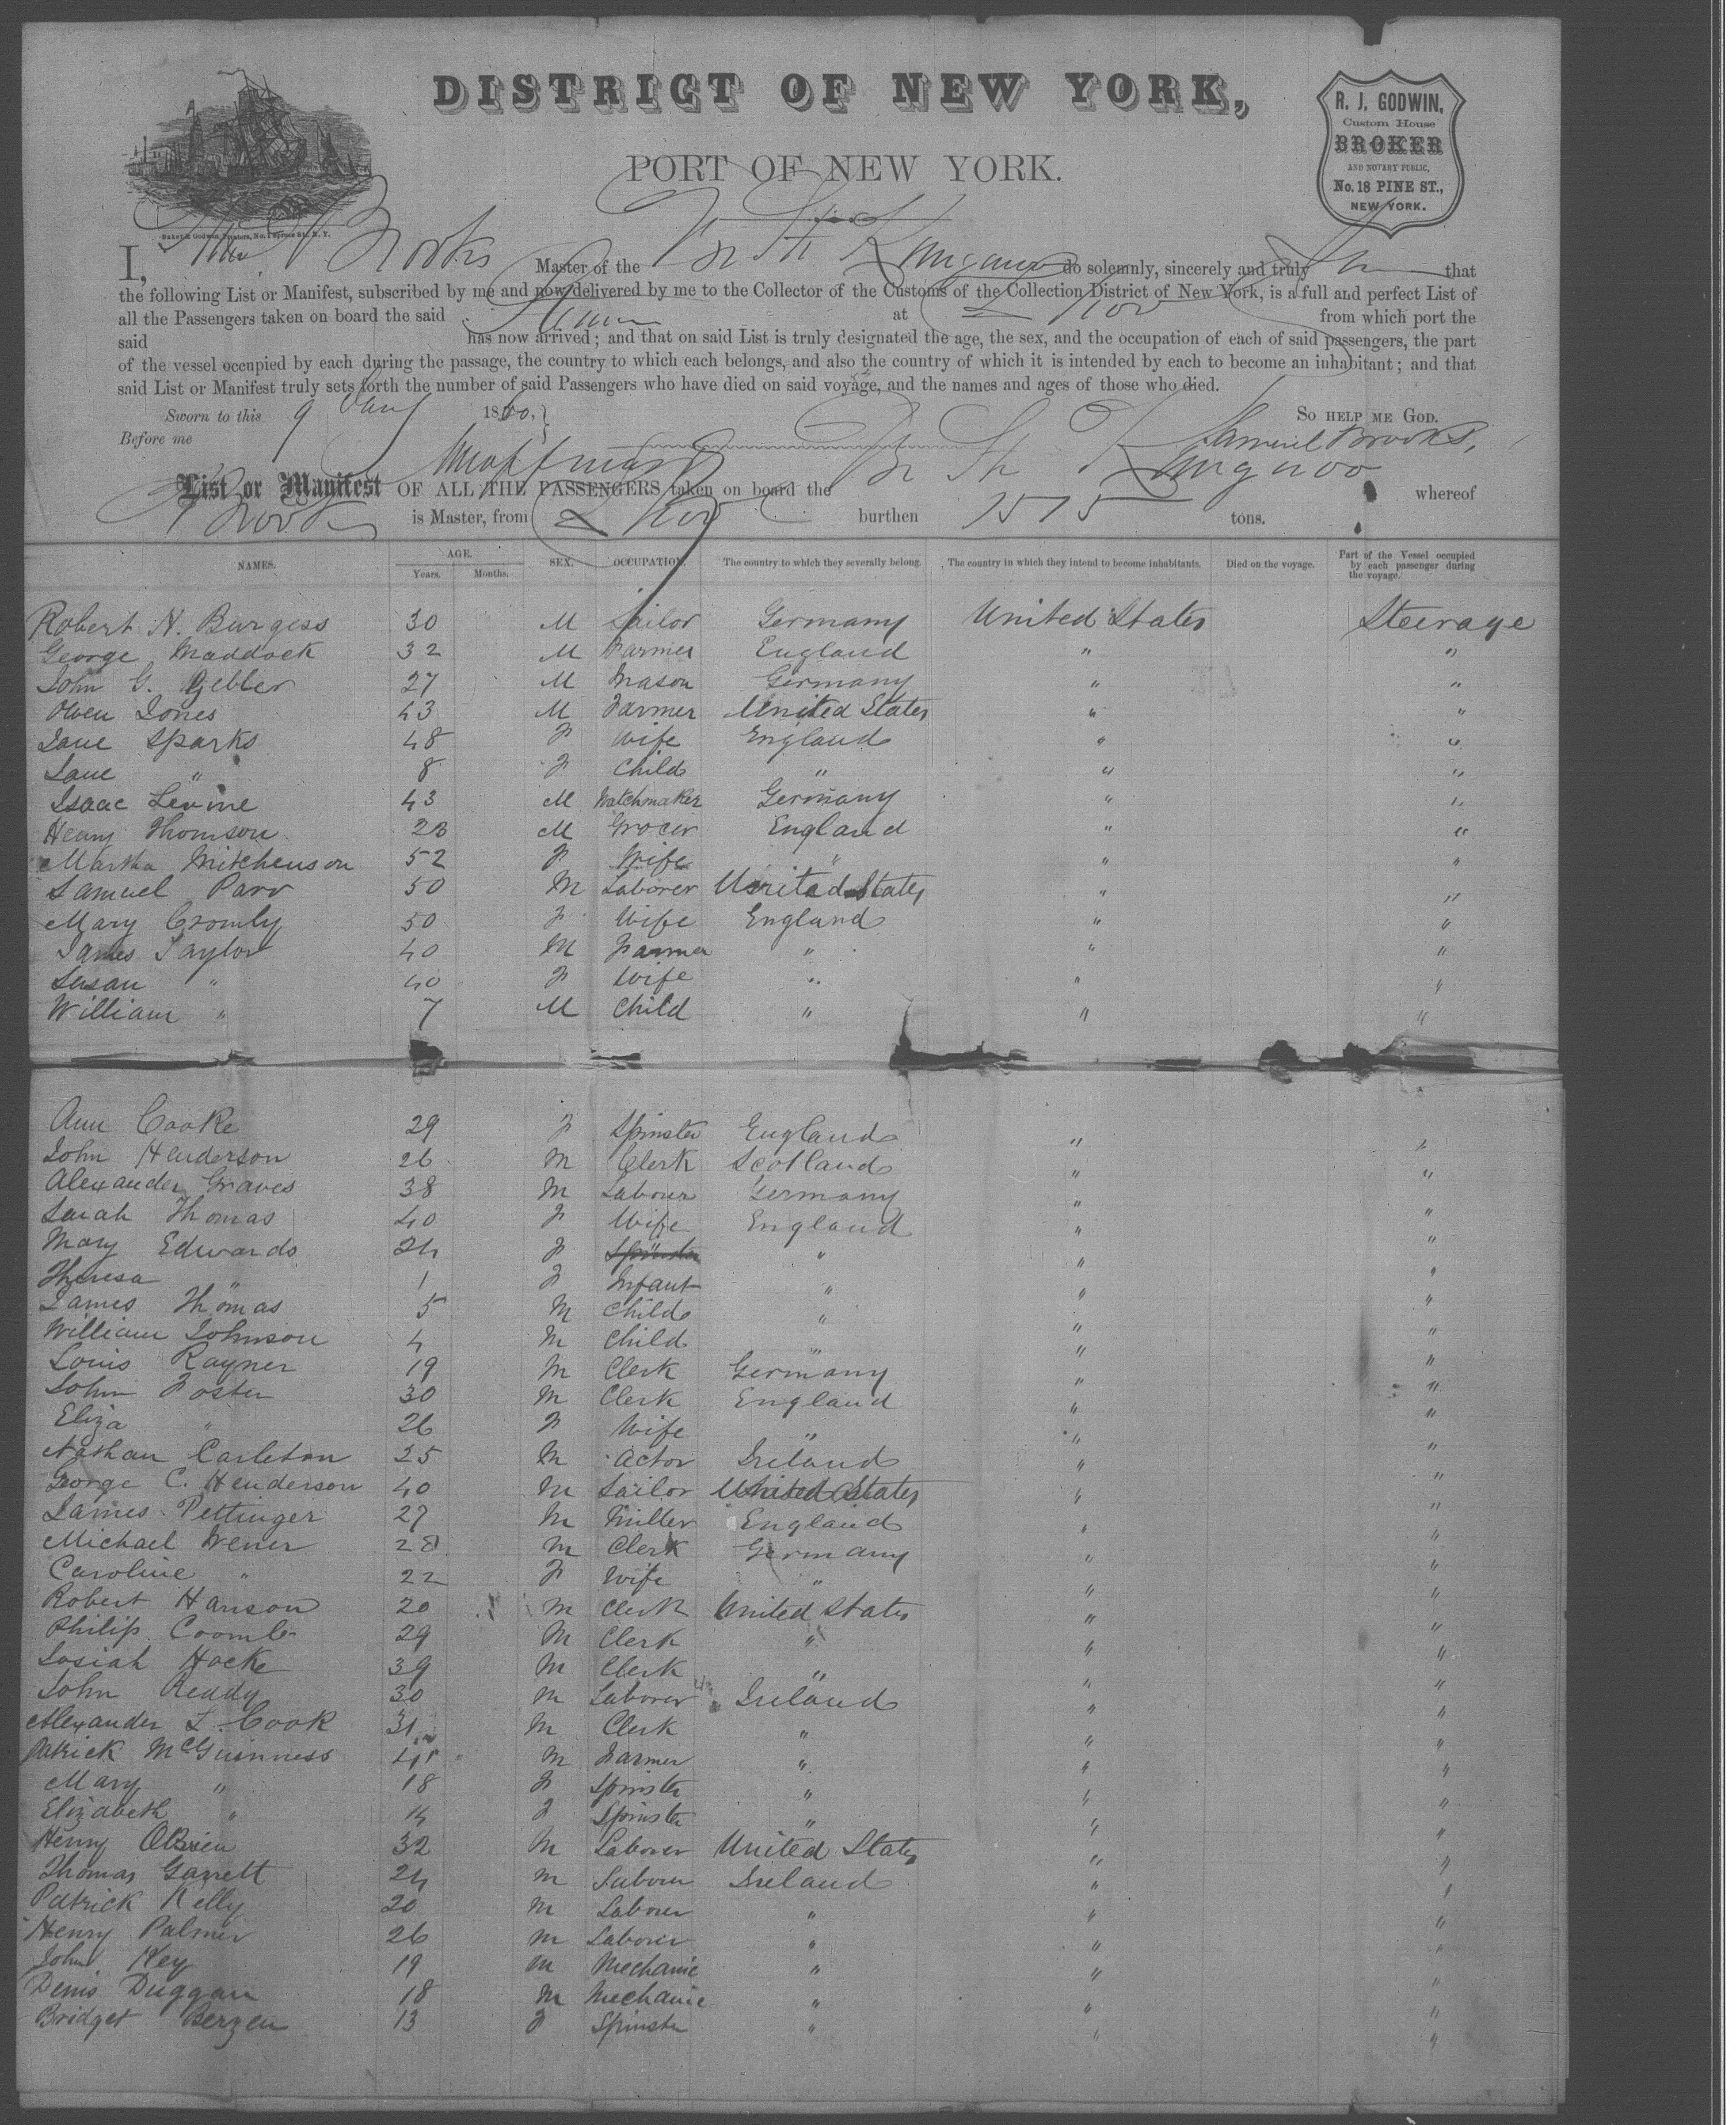 DISTRICT OF NEW YORK,
PORT OF NEW YORK.
R. J. GODWIN,
Custom House
BROKER
AND NOTARY PUBLIC,
No. 18 PINE ST.,
NEW YORK.
Baker & Godwin, Printers, No. 1 Spruce St., N. Y.
I, Brooks Master of the Br St Kangaroo do solemnly, sincerely and truly that
the following List or Manifest, subscribed by me and now delivered by me to the Collector of the Customs of the Collection District of New York, is a full and perfect List of
all the Passengers taken on board the said at from which port the
said has now arrived; and that on said List is truly designated the age, the sex, and the occupation of each of said passengers, the part
of the vessel occupied by each during the passage, the country to which each belongs, and also the country of which it is intended by each to become an inhabitant; and that
said List or Manifest truly sets forth the number of said Passengers who have died on said voyage, and the names and ages of those who died.
Sworn to this 9 1860, So HELP ME GOD.
Before me Samuel Brooks,
List or Manifest OF ALL THE PASSENGERS taken on board the Br St Kangaroo whereof
Brooks is Master, from burthen 1575 tons.
NAMES. AGE. Years. Months. SEX. OCCUPATION. The country to which they severally belong. The country in which they intend to become inhabitants. Died on the voyage. Part of the Vessel occupied by each passenger during the voyage.
Robert H. Burgess 30 M Sailor Germany United States Steerage
George Maddock 32 M Farmer England " "
John G. Gebler 27 M Mason Germany " "
Owen Jones 43 M Farmer United States " "
Jane Sparks 48 F Wife England " "
Jane " 8 F Child " " "
Isaac Levine 43 M Watchmaker Germany " "
Henry Thomson M Grocer England " "
Martha Mitchenson 52 F Wife " " "
Samuel Parr 50 M Laborer United States " "
Mary Cromly 50 F Wife England " "
James Taylor 40 M Farmer " " "
Susan " 40 F Wife " " "
William " 7 M Child " " "
Ann Cooke 29 F Spinster England " "
John Henderson 26 M Clerk Scotland " "
Alexander Graves 38 M Labourer Germany " "
Sarah Thomas 40 F Wife England " "
Mary Edwards 24 F Spinster " " "
Theresa " 1 F Infant " " "
James Thomas 5 M Child " " "
William Johnson 4 M Child " " "
Louis Rayner 19 M Clerk Germany " "
John Foster 30 M Clerk England " "
Eliza " 26 F Wife " " "
Nathan Carleton 25 M Actor Ireland " "
George C. Henderson 40 M Sailor United States " "
James Pettinger 27 M Miller England " "
Michael Wener 28 M Clerk Germany " "
Caroline " 22 F Wife " " "
Robert Hanson 20 M Clerk United States " "
Philip Coombe 29 M Clerk " " "
Josiah Hocke 39 M Clerk " " "
John Ready 30 M Laborer Ireland " "
Alexander L. Cook 31 M Clerk " " "
Patrick McGuinness M Farmer " " "
Mary " 18 F Spinster " " "
Elizabeth " 14 F Spinster " " "
Henry OBrien 32 M Laborer United States " "
Thomas Garrett 24 M Laborer Ireland " "
Patrick Kelly 20 M Laborer " " "
Henry Palmer 26 M Laborer " " "
John Key 19 M Mechanic " " "
Denis Duggan 18 M Mechanic " " "
Bridget Bergen 13 F Spinster " " "